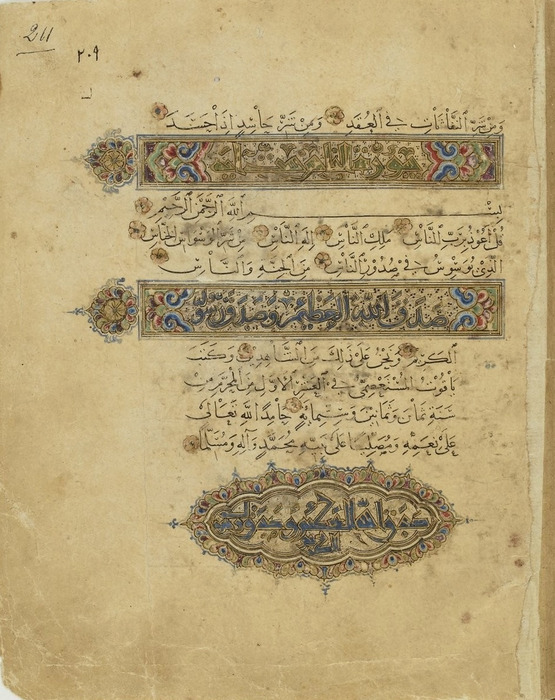 211
٢٠٩
وَمِن شَرِّ النَّفَّاثَاتِ فِي الْعُقَدِ وَمِن شَرِّ حَاسِدٍ إِذَا حَسَدَ
سورة الناس
بِسْمِ اللَّهِ الرَّحْمَنِ الرَّحِيمِ
قُلْ أَعُوذُ بِرَبِّ النَّاسِ مَلِكِ النَّاسِ إِلَهِ النَّاسِ مِن شَرِّ الْوَسْوَاسِ الْخَنَّاسِ
الَّذِي يُوَسْوِسُ فِي صُدُورِ النَّاسِ مِنَ الْجِنَّةِ وَالنَّاسِ
صدق الله العظيم وصدق رسوله
الكريم ونحن على ذلك من الشاهدين وكتب
ياقوت المستعصمي في العشر الاول من المحرم من
سنة ثمان وثمانين وستمايه حامدا لله تعالى
على نعمه ومصليا على نبيه محمد وآله ومسلما
صدق الله العظيم وصدق رسوله
الكريم